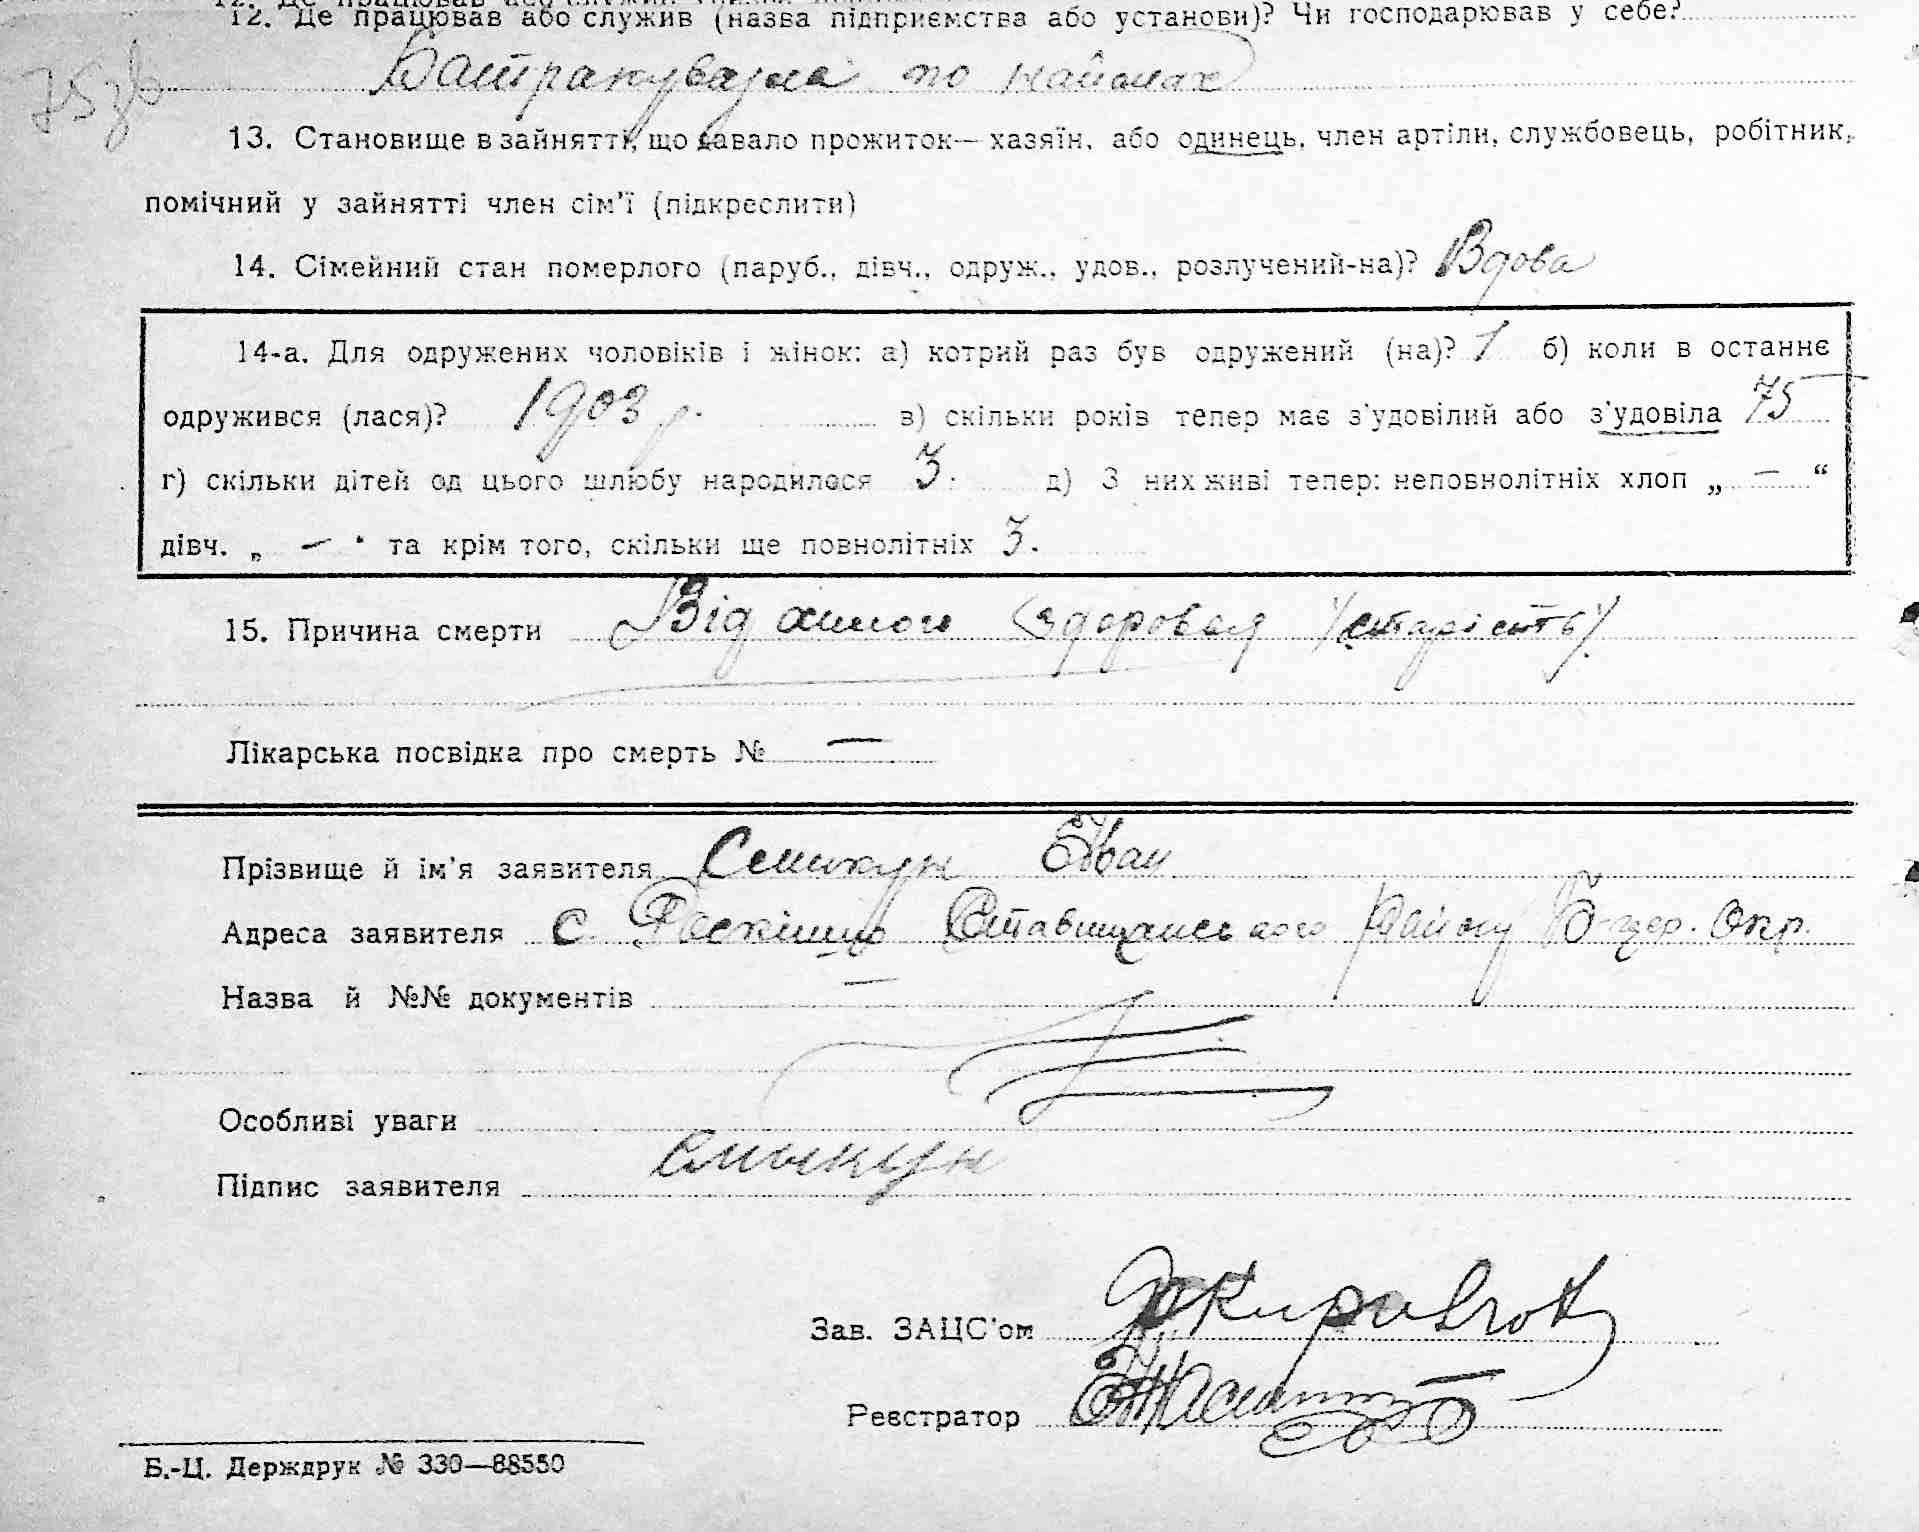 12. Де працював або служив (назва підприємства або установи)? Чи господарював у себе?
Батракувала по наймах
75 р
13. Становище в зайнятті, що давало прожиток—хазяїн, або одинець, член артіли, службовець, робітник,
помічний у зайнятті член сім'ї (підкреслити)
14. Сімейний стан померлого (паруб., дівч., одруж., удов., розлучений-на)? Вдова
14-а. Для одружених чоловіків і жінок: а) котрий раз був одружений (на)? 1 б) коли в останнє
одружився (лася)? 1903 р. в) скільки років тепер має з'удовілий або з'удовіла 75
г) скільки дітей од цього шлюбу народилося 3. д) З них живі тепер: неповнолітніх хлоп „ — “
дівч. „ — " та крім того, скільки ще повнолітніх 3.
15. Причина смерти Від здоровая /старість/.
Лікарська посвідка про смерть № —
Прізвище й ім'я заявителя Смикун Іван
Адреса заявителя с. Роскішно Ставищанського Району Б-цер. Окр.
Назва й №№ документів —
Особливі уваги
Підпис заявителя Смыкун
Зав. ЗАЦС'ом
Реєстратор
Б.-Ц. Держдрук № 330—88550